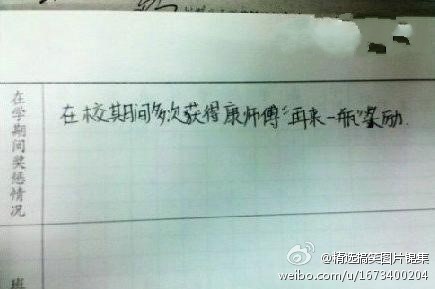 在学期间奖惩情况
在校期间多次获得康师傅“再来一瓶”奖励.
班
@精选搞笑图片锦集
weibo.com/u/1673400204